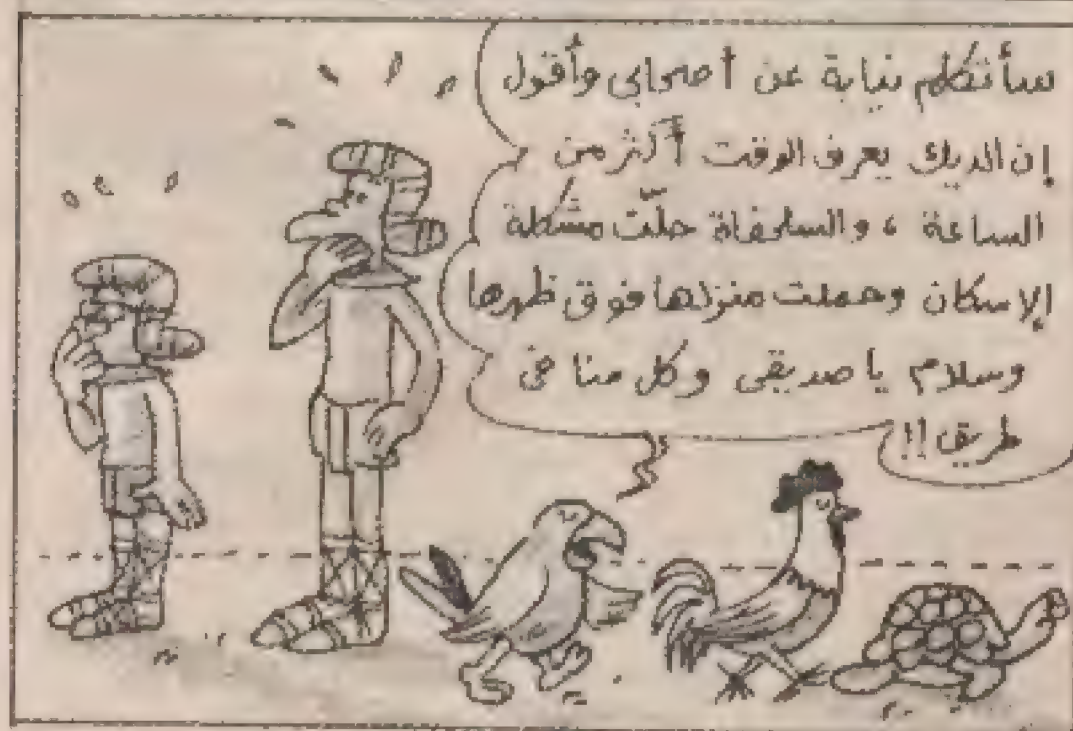 سأتكلم نيابة عن أصحابي وأقول
إن الديك يعرف الوقت أكثر من
الساعة ، والسلحفاة حلّت مشكلة
الإسكان وحملت منزلها فوق ظهرها
وسلام يا صديقى وكل منا فى
طريق !!